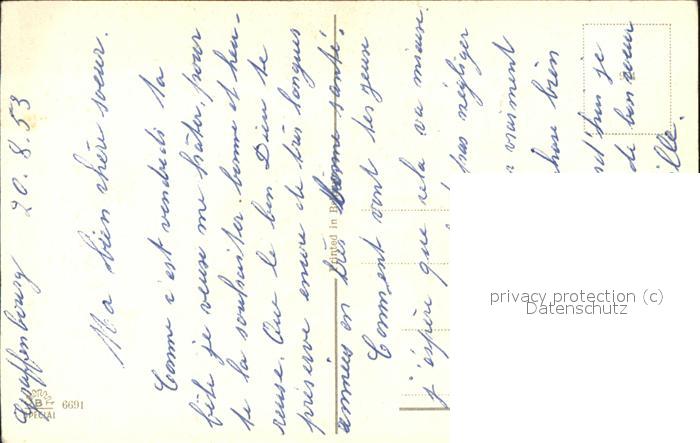 Aschaffenbourg 20.8.53
Ma bien chère soeur.
Comme c'est vendredi ta
fête je veuse me hâter, pour
te la souhaiter bonne et heu-
reuse. Que le bon Dieu te
préserve encore de très longues
années en très bonne santé.
Comment vont tes yeux
j'éspère que cela va mieux.
pas négliger
vraiment
chose bien
je
de ton coeur
ille.
Printed in
B
SPECIAL
6691
privacy protection (c)
Datenschutz